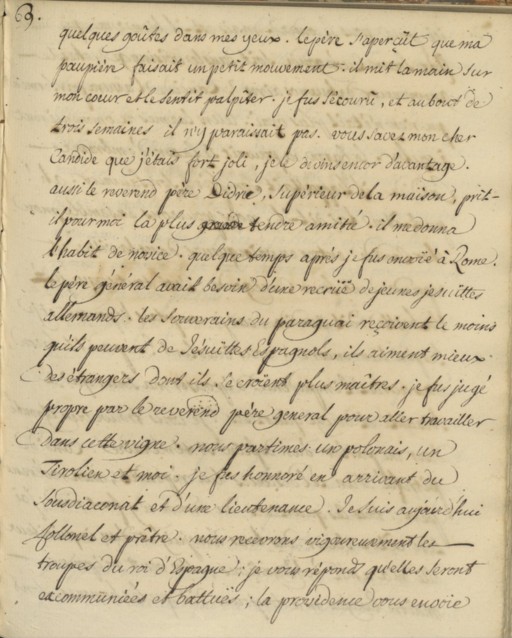 69.
quelques goûtes dans mes yeux. le père s'aperçût que ma
paupière faisait un petit mouvement. il mit la main sur
mon cœur et le sentit palpiter. je fus secourû, et au bout de
trois semaines il n'y paraissait pas. vous savez mon cher
Candide que j'étais fort joli, je le divins encor d'avantage.
aussi le reverend père Didrie, supérieur de la maison, prit-
il pour moi la plus grande tendre amitié. il me donna
l'habit de novice. quelque temps après je fus envoïé à Rome.
le père général avait besoin d'une recruë de jeunes jesuittes
allemands. les souverains du paraguai reçoivent le moins
qu'ils peuvent de Jésuittes Espagnols, ils aiment mieux
des étrangers dont ils se croïent plus maîtres. je fus jugé
propre par le reverend père general pour aller travailler
dans cette vigne. nous partimes un polonais, un
Tirolien et moi. je fus honnoré en arrivant du
sousdiaconat et d'une lieutenance. Je suis aujourd'hui
collonel et prêtre. nous recevrons vigoureusement les
troupes du roi d'Espagne; je vous réponds qu'elles seront
excommuniées et battuës; la providence vous envoie